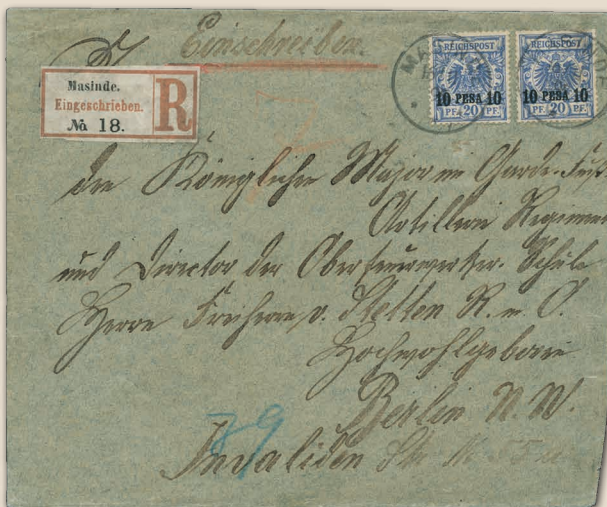 Einschreiben.
Masinde.
Eingeschrieben.
R
№ 18.
REICHSPOST
10 PESA 10
PF. 20 PF.
REICHSPOST
10 PESA 10
PF. 20 PF.
Königlichen Major im Garde-Fuß
Artillerie Regiment
und Director der Oberfeuerwerker-Schule
Herrn Freiherrn v. Stetten R. m. O.
Hochwohlgeboren
Berlin N. W.
Invaliden